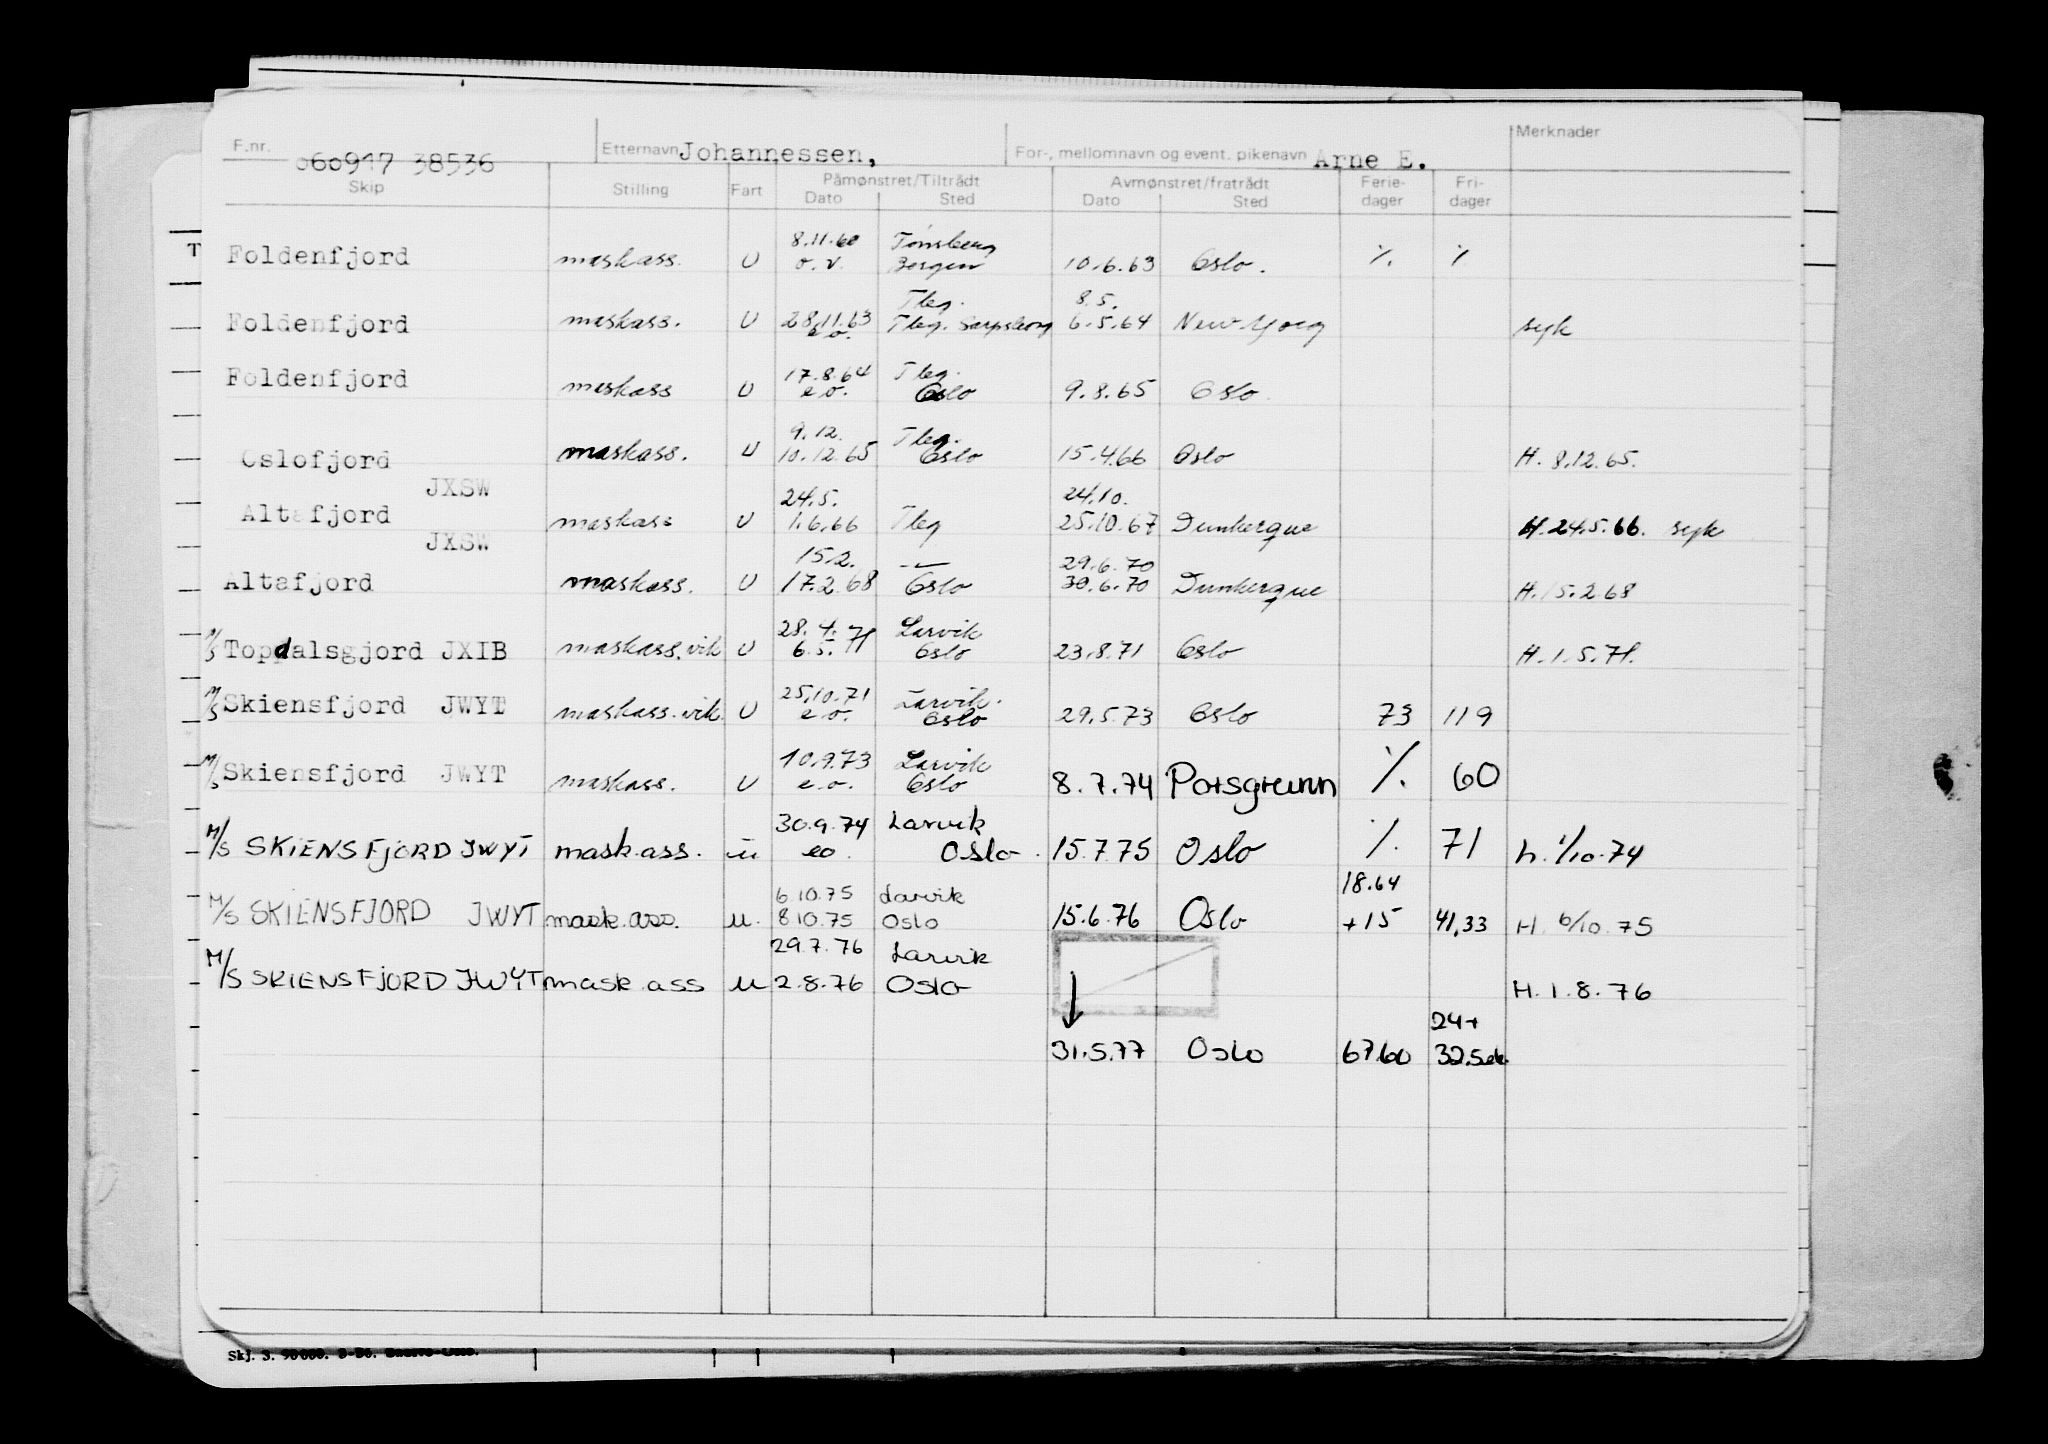 F.nr. 060917 38536 Etternavn Johannessen, For-, mellomnavn og event. pikenavn Arne E. Merknader
Skip Stilling Fart Påmønstret/Tiltrådt Avmønstret/fratrådt Ferie- Fri-
Dato Sted Dato Sted dager dager
8.11.60 Tønsberg
T Foldenfjord maskass. U o.v. Bergen 10.6.63 Oslo. ./. ./.
Tbg. 8.5.
Foldenfjord maskass. U 28.11.63 Tbg. Sarpsborg 6.5.64 New Yorg syk
e.o.
17.8.64 Tbg.
Foldenfjord maskass U e.o. Oslo 9.8.65 Oslo
9.12. Tbg.
Oslofjord maskass. U 10.12.65 Oslo 15.4.66 Oslo H. 8.12.65.
JXSW 24.5. 24.10.
Altafjord maskass U 1.6.66 Tbg 25.10.67 Dunkerque H. 24.5.66. syk
JXSW 15.2. — 29.6.70
Altafjord maskass. U 17.2.68 Oslo 30.6.70 Dunkerque H. 15.2.68
28.4. Larvik
M/S Topdalsgjord JXIB maskass.vik U 6.5.71 Oslo 23.8.71 Oslo H. 1.5.71.
25.10.71 Larvik.
M/S Skiensfjord JWYT maskass.vik. U e.o. Oslo 29.5.73 Oslo 73 119
10.9.73 Larvik
M/S Skiensfjord JWYT maskass. U e.o. Oslo 8.7.74 Porsgrunn ./. 60
30.9.74 Larvik
M/S SKIENSFJORD JWYT mask.ass. u eo. Oslo. 15.7.75 Oslo ./. 71 h. 1/10.74
6.10.75 Larvik 18.64
M/S SKIENSFJORD JWYT mask.ass. u. 8.10.75 Oslo 15.6.76 Oslo +15 41,33 H. 6/10.75
29.7.76 Larvik
M/S SKIENSFJORD JWYT mask.ass u 2.8.76 Oslo H. 1.8.76
24+
31.5.77 Oslo 67.60 32.5
Skj. 3. 90000.